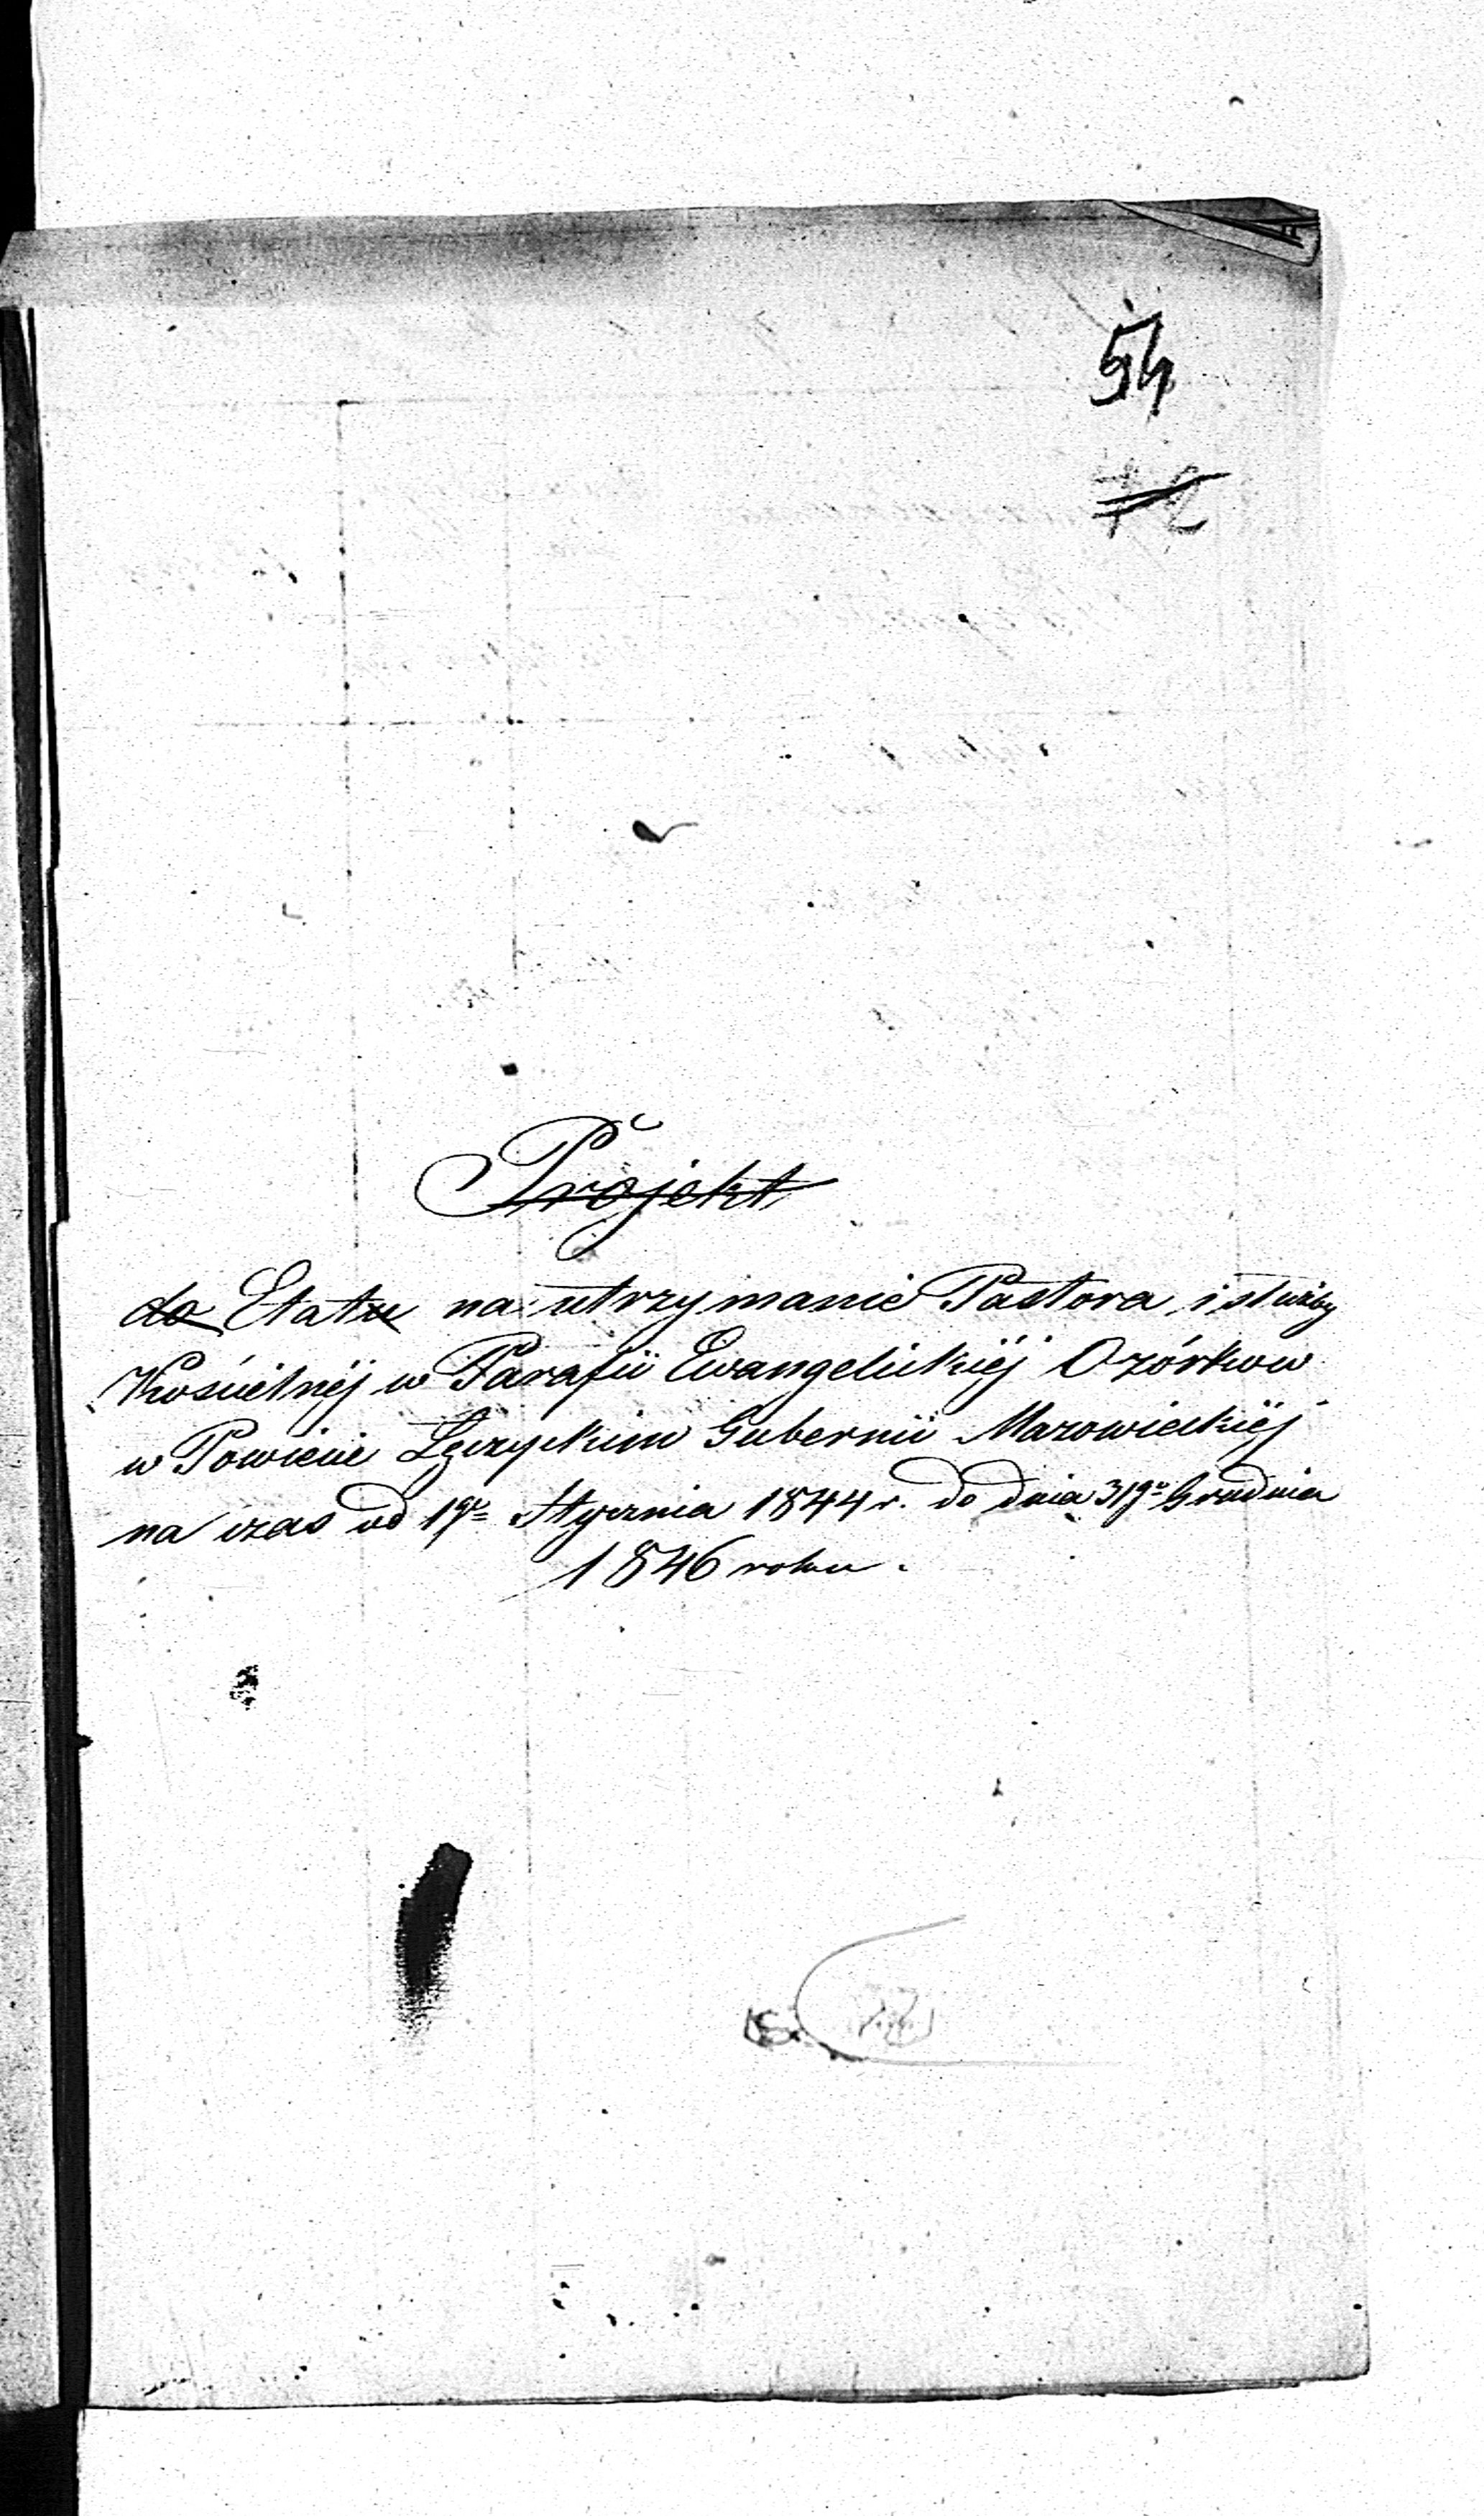 54
Projekt
do Etatu na utrzymanie Pastora i służby
Kościelnéj w Parafii Ewangelickiéj Ozórkow
w Powiecie Łęczyckim Gubernii Mazowieckiéj
na czas od 1go Stycznia 1844 r. do dnia 31go Grudnia
1846 roku.